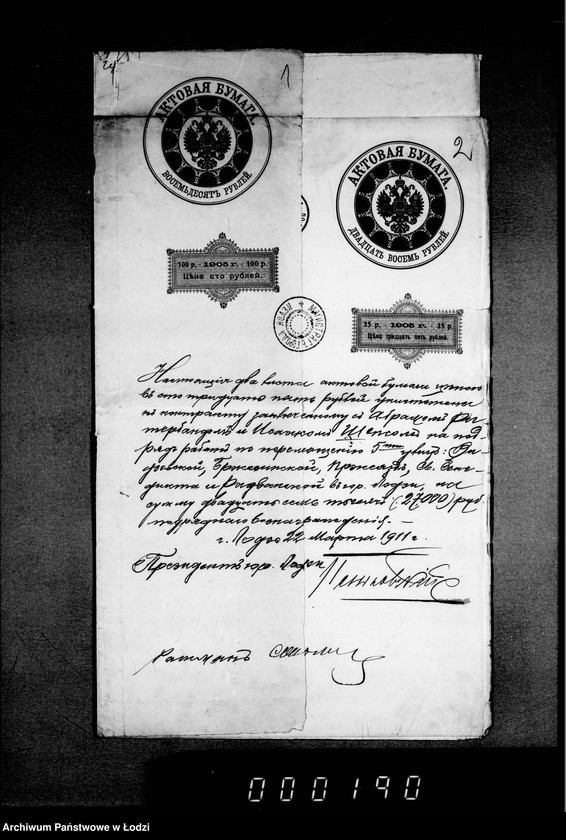 24
1
АКТОВАЯ БУМАГА.
ВОСЕМЬДЕСЯТЪ РУБЛЕЙ.
2
АКТОВАЯ БУМАГА.
ДВАДЦАТЬ ВОСЕМЬ РУБЛЕЙ.
100 р. - 1905 г. - 100 р.
Цѣна сто рублей.
МАГИСТРАТЪ ГОРОДА ЛОДЗИ
35 р. - 1905 г. - 35 р.
Цѣна тридцать пять рублей.
Настоящіе два листа актовой бумаги цѣною
въ сто тридцать пять рублей уничтожены
къ контракту заключенному съ Абрамомъ
и на под-
рядъ работъ по перемощенію 5ти улицъ:
Бржезинской, Св. Бене-
дикта и въ гор. Лодзи, на
сумму двадцать семь тысячъ (27000) руб.
подряднаго вознагражденія. —
г. Лодзь 22 Марта 1911 г.
Президентъ гор. Лодзи
000190
Archiwum Państwowe w Łodzi